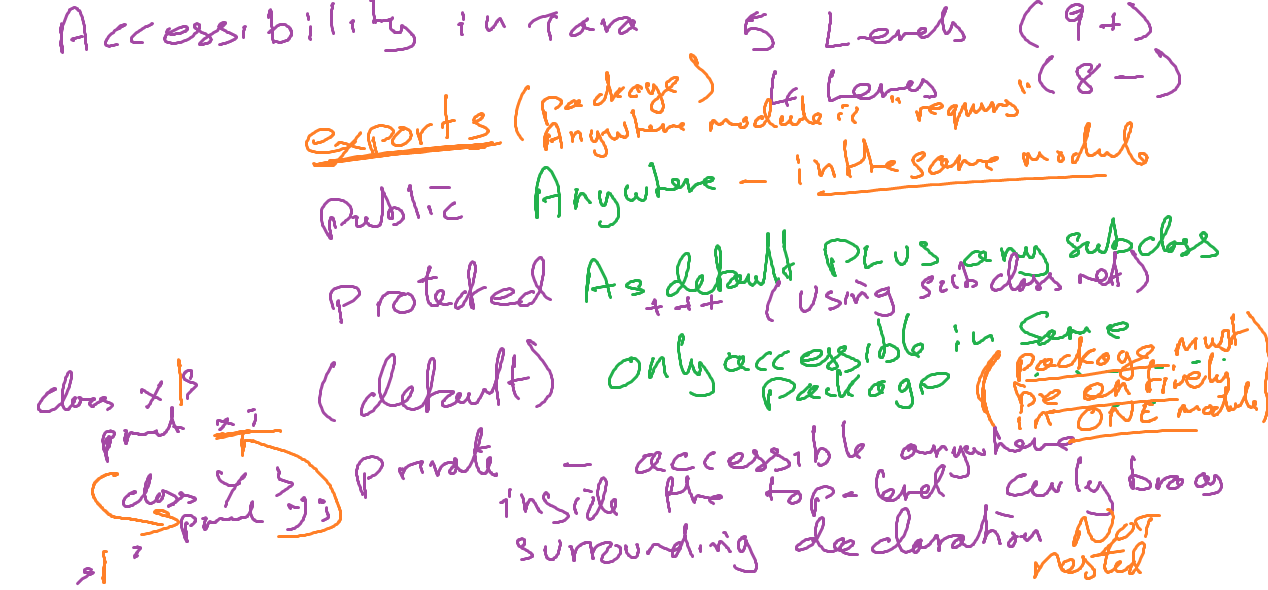 Accessibility in Java 5 Levels (9+)
4 Levels (8-)
exports (package)
Anywhere module is "requires"
Public Anywhere - in the same module
Protected As default PLUS any subclass
+++ (using subclass ref)
(default) only accessible in same
package (package must
be entirely
in ONE module)
Private - accessible anywhere
inside the top-level curly braces
surrounding declaration NOT
nested
class X {
x;
class Y {
y;
}
}